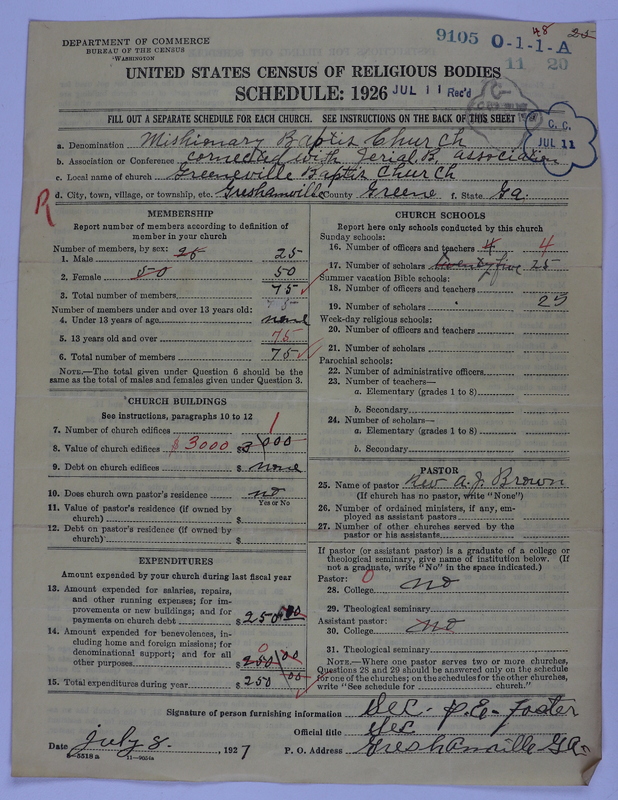 DEPARTMENT OF COMMERCE
BUREAU OF THE CENSUS
WASHINGTON
9105 0-1-1-A
48 25
11 20
UNITED STATES CENSUS OF RELIGIOUS BODIES
SCHEDULE: 1926
JUL 11 Rec'd
FILL OUT A SEPARATE SCHEDULE FOR EACH CHURCH. SEE INSTRUCTIONS ON THE BACK OF THIS SHEET
C. C.
JUL 11
a. Denomination Mishionary Baptis Church
b. Association or Conference connected with Jerial B. association
c. Local name of church Greeneville Baptis Church
d. City, town, village, or township, etc. Greshamville County Greene f. State Ga.
R
MEMBERSHIP
Report number of members according to definition of member in your church
Number of members, by sex:
1. Male 25 25
2. Female 50 50
3. Total number of members 75
75
Number of members under and over 13 years old:
4. Under 13 years of age none
5. 13 years old and over 75
6. Total number of members 75
NOTE.—The total given under Question 6 should be
same as the total of males and females given under Question 3.
CHURCH BUILDINGS
See instructions, paragraphs 10 to 12
7. Number of church edifices 1
8. Value of church edifices $3000 $3000
9. Debt on church edifices $ none
10. Does church own pastor's residence no
Yes or No
11. Value of pastor's residence (if owned by
church) $
12. Debt on pastor's residence (if owned by
church) $
EXPENDITURES
Amount expended by your church during last fiscal year
13. Amount expended for salaries, repairs,
and other running expenses; for im-
provements or new buildings; and for
payments on church debt $250 00
14. Amount expended for benevolences, in-
cluding home and foreign missions; for
denominational support; and for all
other purposes 0 $250 00
15. Total expenditures during year $250 00
CHURCH SCHOOLS
Report here only schools conducted by this church
Sunday schools:
16. Number of officers and teachers 4 4
17. Number of scholars twenty five 25
Summer vacation Bible schools:
18. Number of officers and teachers
19. Number of scholars 25
Week-day religious schools:
20. Number of officers and teachers
21. Number of scholars
Parochial schools:
22. Number of administrative officers
23. Number of teachers—
a. Elementary (grades 1 to 8)
b. Secondary
24. Number of scholars—
a. Elementary (grades 1 to 8)
b. Secondary
PASTOR
25. Name of pastor Rev A. J. Brown
(If church has no pastor, write "None")
26. Number of ordained ministers, if any, em-
ployed as assistant pastors
27. Number of other churches served by the
pastor or his assistants
If pastor (or assistant pastor) is a graduate of a college or
theological seminary, give name of institution below. (If
not a graduate, write "No" in the space indicated.)
Pastor: 0
28. College no
29. Theological seminary
Assistant pastor:
30. College no
31. Theological seminary
NOTE.—Where one pastor serves two or more churches,
Questions 28 and 29 should be answered only on the schedule
for one of the churches; on the schedules for the other churches,
write "See schedule for church."
Signature of person furnishing information Sec. P. E. Foster
Official title Sec
Date July 8. , 1927 P. O. Address Greshamville Ga.
8-5518a 11-9054a